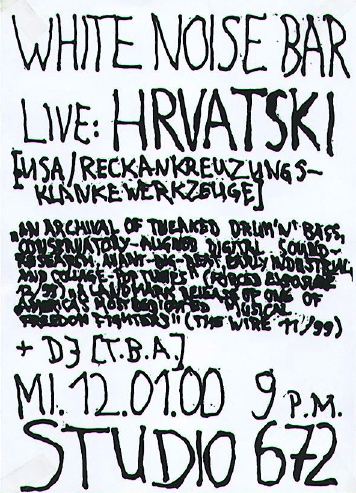 WHITE NOISE BAR
LIVE: HRVATSKI
[USA/RECKANKREUZUNGS-
KLANKEWERKZEUGE]
"AN ARCHIVAL OF TWEAKED DRUM'N' BASS,
CONSERVATORY-ALIGNED DIGITAL SOUND-
RESEARCH, AVANT- EARLY INDUSTRIAL
AND COLLAGE-POP TUNES" (FORCED EXPOSURE
12/99) "A LANDMARK RELEASE OF ONE OF
AMERICA'S MOST DEDICATED MUSICAL
FREEDOM FIGHTERS" (THE WIRE 11/99)
+ DJ [T.B.A.]
MI. 12.01.00 9 P.M.
STUDIO 672